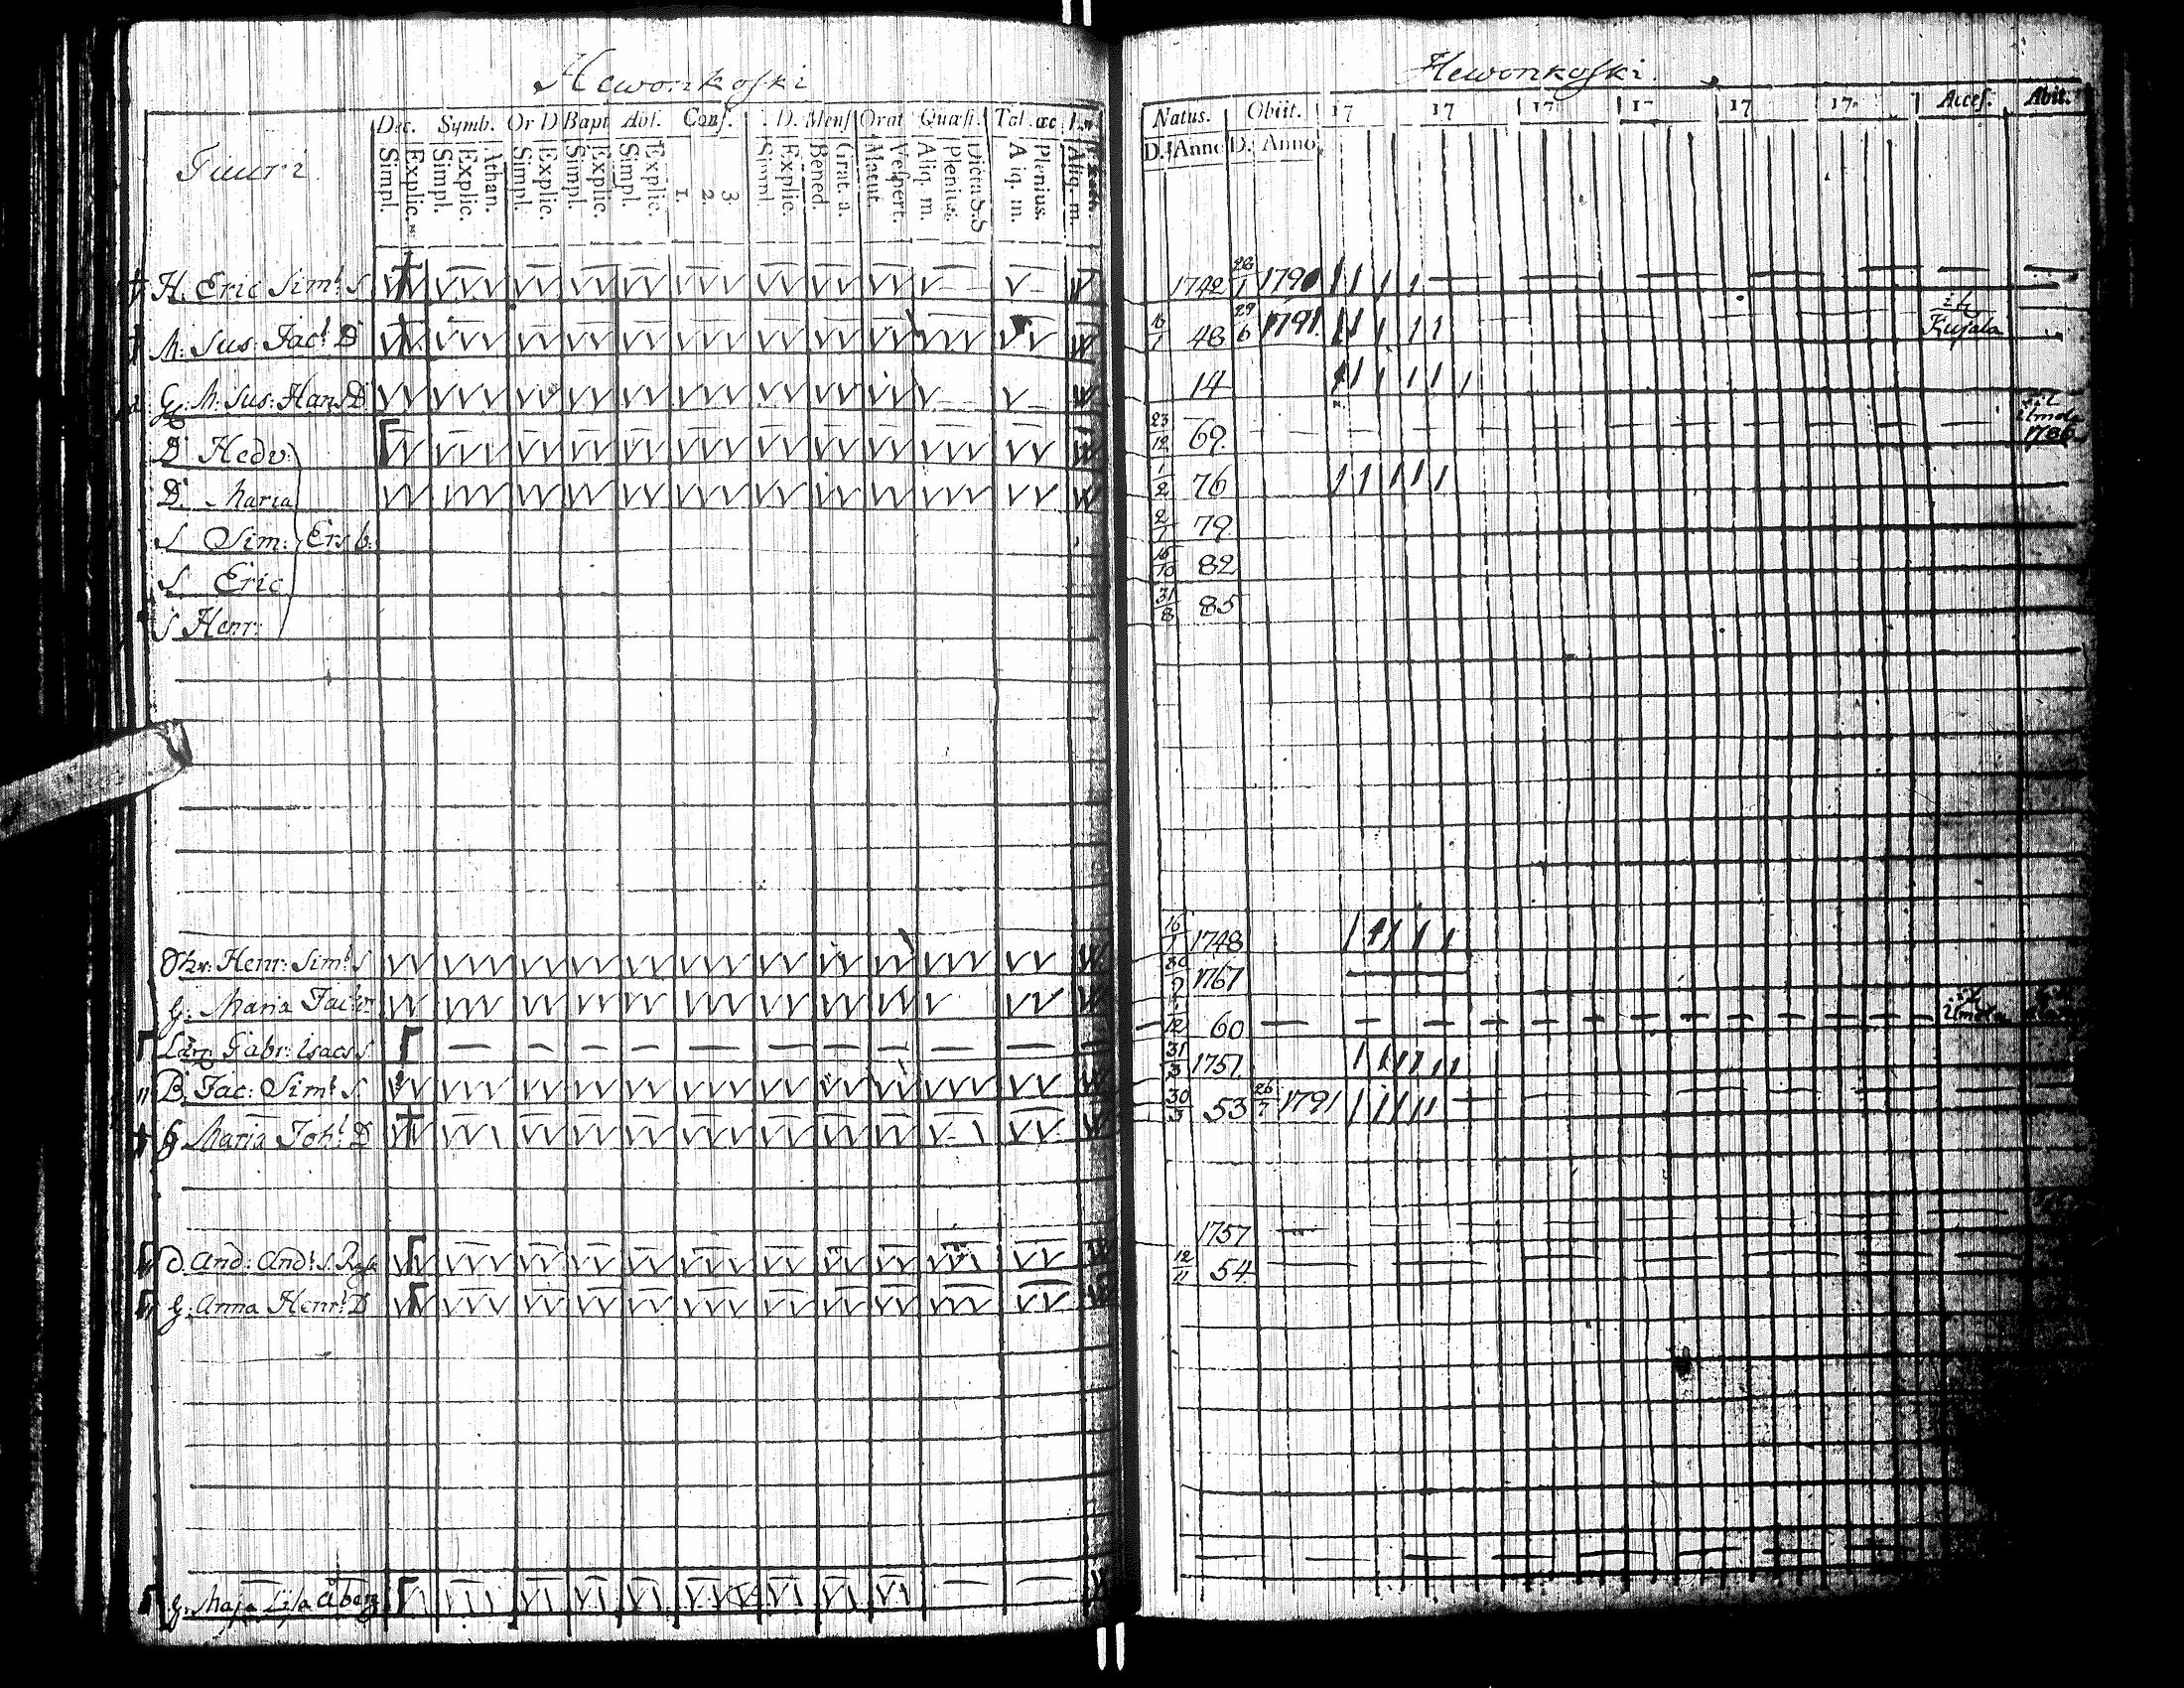 Hewonkoski
Dec. Symb. Or D Bapt Abs. Conf. D. Mens Orat Quæst. Tal. æc
Simpl. Explic. Simpl. Explic. Athan. Simpl. Explic. Simpl. Explic. Simpl. Explic. 1. 2 3 Simpl Explic. Bened. Grat. a. Matut. Vespert. Aliq. m. Plenius. Dicta S.S Aliq. m. Plenius. Aliq. m.
Tiuuri
H. Eric Sim: S
h: Sus: Jac: D
h: Sus: Hans D
D Hedv:
D Maria
S Sim: Ers b:
S Eric
S Henr:
Henr: Sim: S
g: Maria Jac:
Gabr: Isacs S
B. Jac: Sim: S
Maria Joh: D
D. And: And: S.
g. Anna Henr: D
g. Maja Lisa Åberg
Hewonkoski
Natus. Obiit. 17 17 17 17 17 17 Acces. Abit.
D. Anno D. Anno
1742 26/1 1790
16/1 48 29/6 1791 Kujala
14
23/12 69. 1786
1/2 76
2/1 79
16/10 82
31/8 85
16/1 1748
30/9 1767
12 60
31/3 1751
30/3 53 26/7 1791
1757
12/11 54